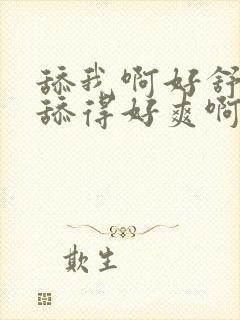 舔我啊好舒
舔得好爽啊
欺生